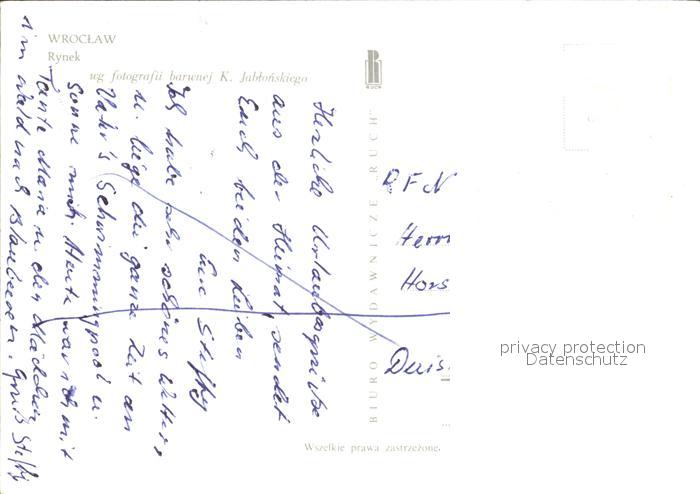 WROCŁAW
Rynek
wg fotografii barwnej K. Jabłońskiego
RUCH
BIURO WYDAWNICZE „RUCH”
Herzliche Urlaubsgrüße
aus der Heimat sendet
Euch beiden Lieben
Eure Steffy
Ich habe sehr schönes Wetter,
u. liege die ganze Zeit an
Schwimmingpool u.
Sonne mich. Heute war ich mit
Tante Maria u. den Mädchen
im Wald nach Blaubeeren. Gruß Steffy
RFN
Herrn
Hors
Duis
privacy protection
Datenschutz
Wszelkie prawa zastrzeżone.